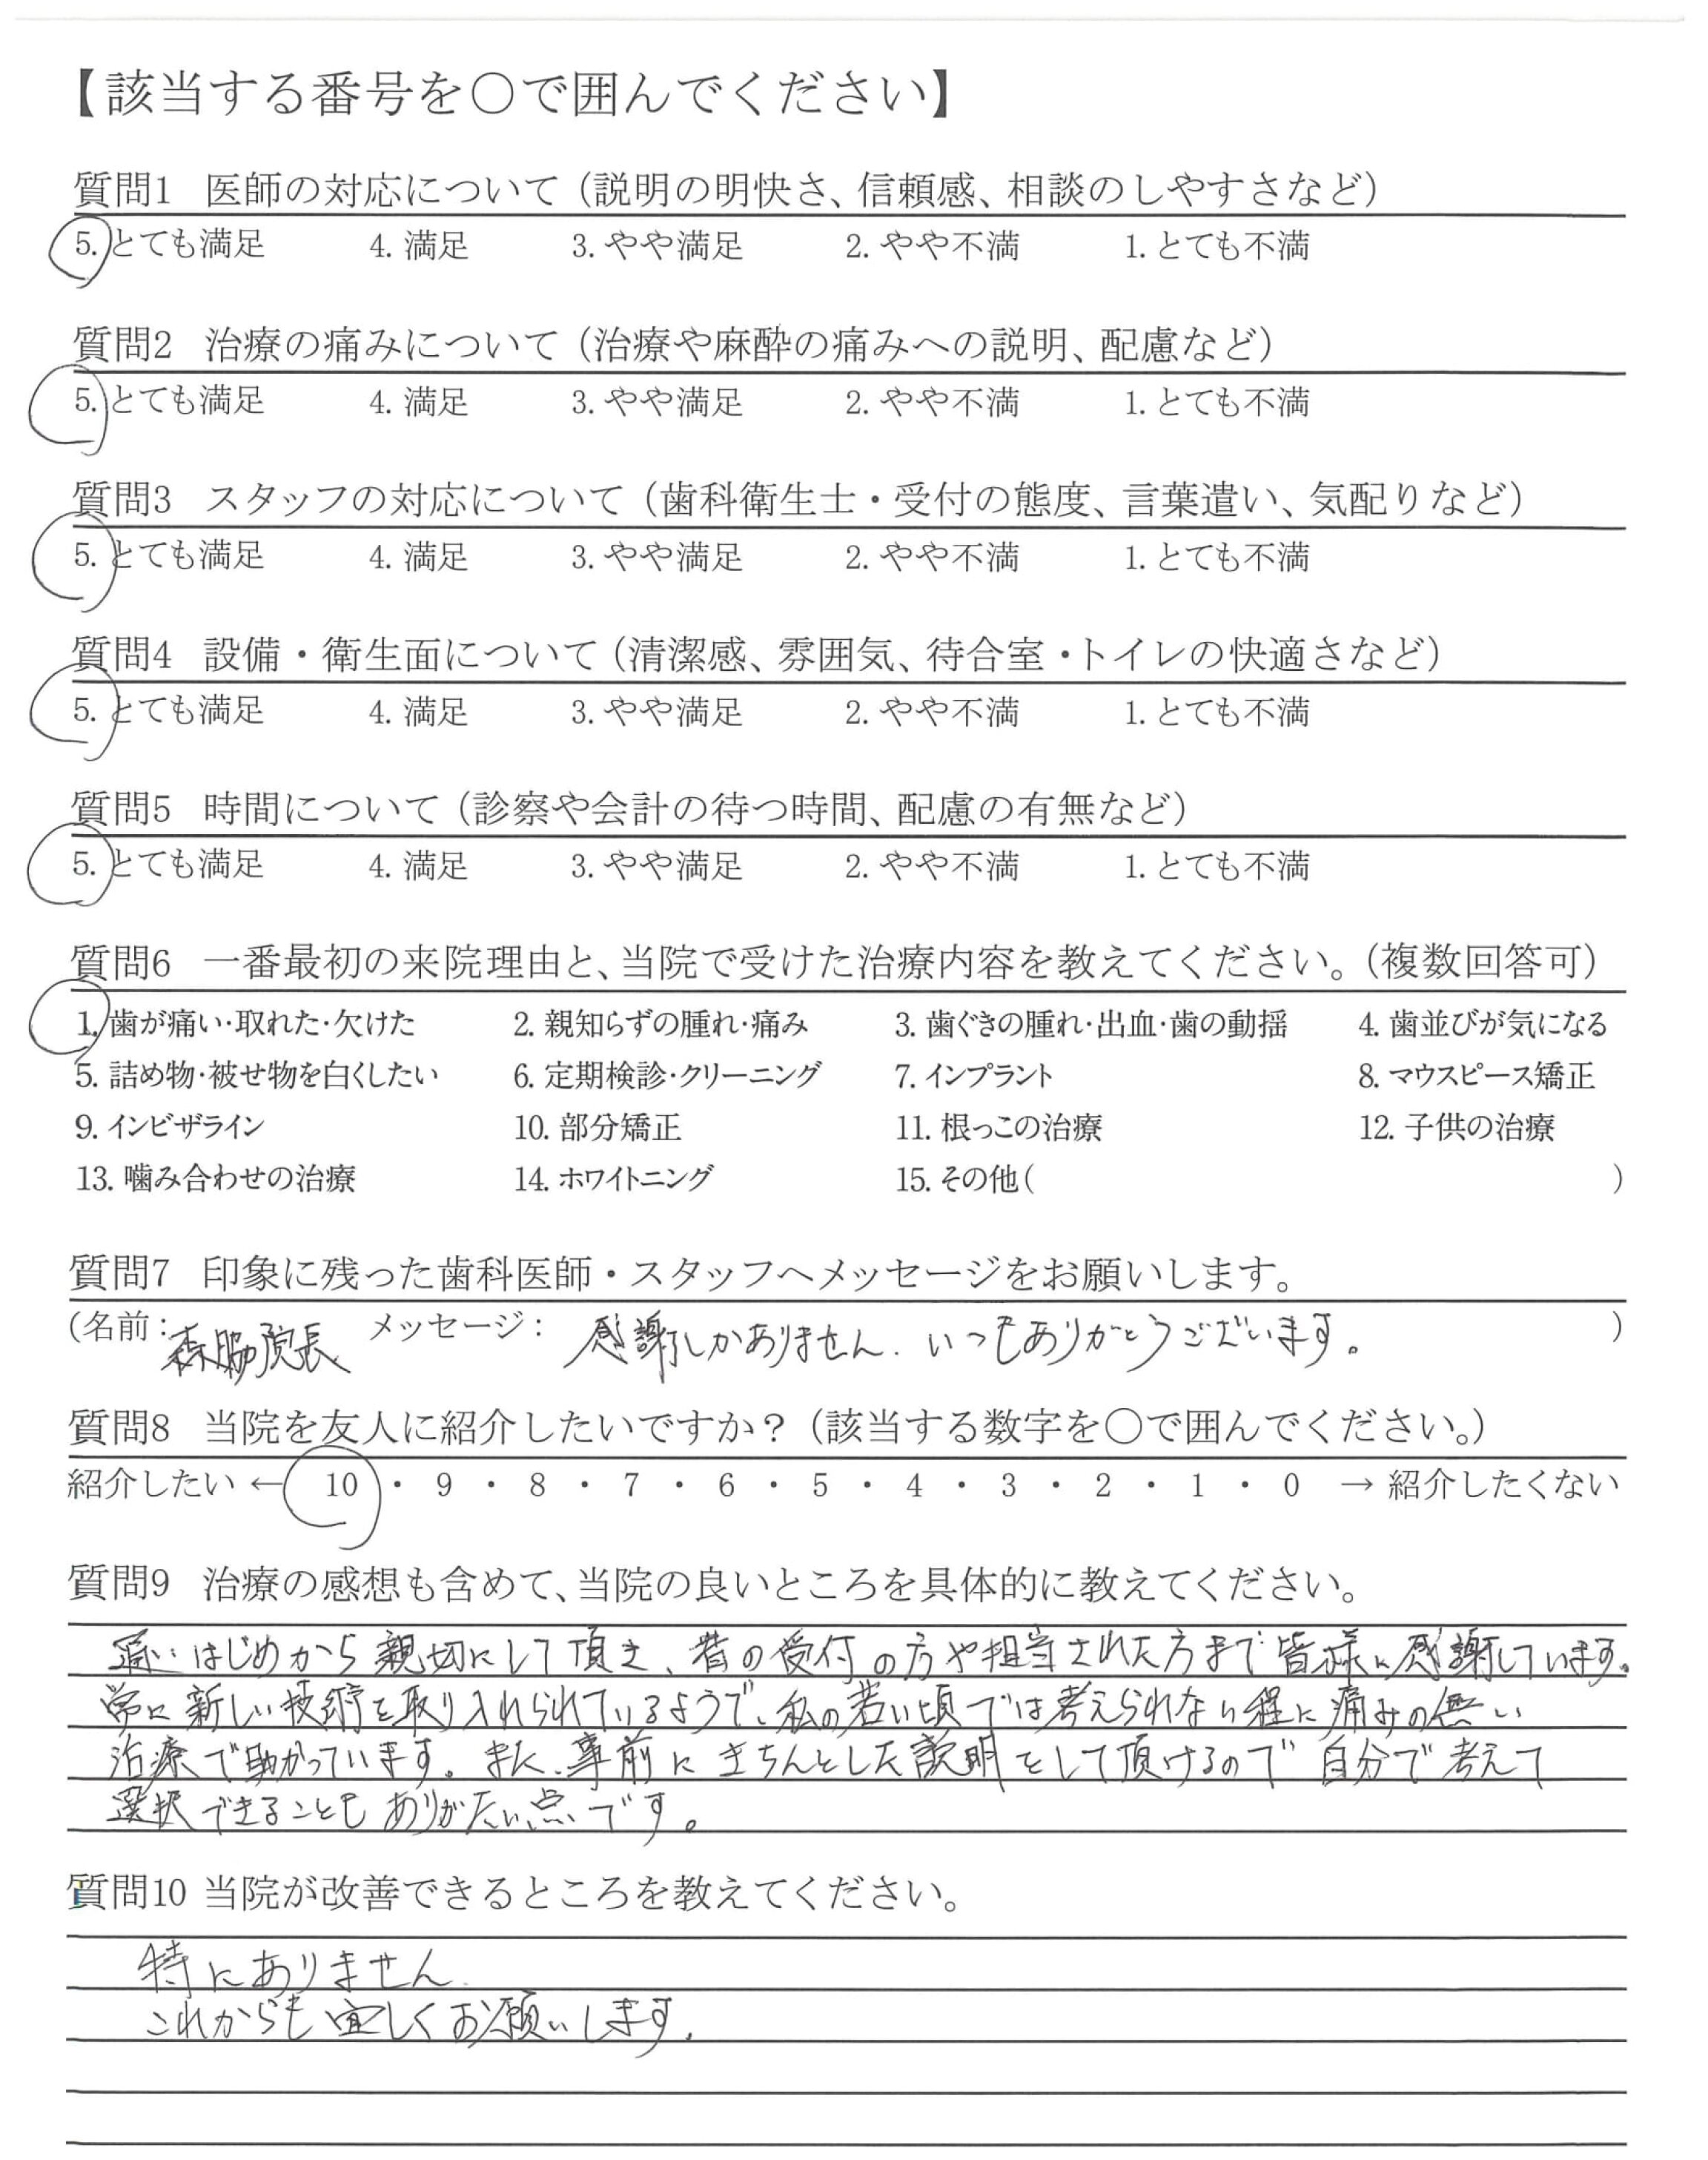 【該当する番号を○で囲んでください】
質問1 医師の対応について（説明の明快さ、信頼感、相談のしやすさなど）
5. とても満足 4. 満足 3. やや満足 2. やや不満 1. とても不満
質問2 治療の痛みについて（治療や麻酔の痛みへの説明、配慮など）
5. とても満足 4. 満足 3. やや満足 2. やや不満 1. とても不満
質問3 スタッフの対応について（歯科衛生士・受付の態度、言葉遣い、気配りなど）
5. とても満足 4. 満足 3. やや満足 2. やや不満 1. とても不満
質問4 設備・衛生面について（清潔感、雰囲気、待合室・トイレの快適さなど）
5. とても満足 4. 満足 3. やや満足 2. やや不満 1. とても不満
質問5 時間について（診察や会計の待つ時間、配慮の有無など）
5. とても満足 4. 満足 3. やや満足 2. やや不満 1. とても不満
質問6 一番最初の来院理由と、当院で受けた治療内容を教えてください。（複数回答可）
1. 歯が痛い・取れた・欠けた 2. 親知らずの腫れ・痛み 3. 歯ぐきの腫れ・出血・歯の動揺 4. 歯並びが気になる
5. 詰め物・被せ物を白くしたい 6. 定期検診・クリーニング 7. インプラント 8. マウスピース矯正
9. インビザライン 10. 部分矯正 11. 根っこの治療 12. 子供の治療
13. 噛み合わせの治療 14. ホワイトニング 15. その他（ ）
質問7 印象に残った歯科医師・スタッフへメッセージをお願いします。
（名前：森脇院長 メッセージ：感謝しかありません. いつもありがとうございます。）
質問8 当院を友人に紹介したいですか？（該当する数字を○で囲んでください。）
紹介したい ← 10 ・ 9 ・ 8 ・ 7 ・ 6 ・ 5 ・ 4 ・ 3 ・ 2 ・ 1 ・ 0 → 紹介したくない
質問9 治療の感想も含めて、当院の良いところを具体的に教えてください。
通いはじめから親切にして頂き、昔の受付の方や担当された方まで皆様に感謝しています。
常に新しい技術を取り入れられているようで、私の若い頃では考えられない程に痛みの無い
治療で助かっています。また、事前にきちんとした説明をして頂けるので自分で考えて
選択できることもありがたい点です。
質問10 当院が改善できるところを教えてください。
特にありません.
これからも宜しくお願いします.